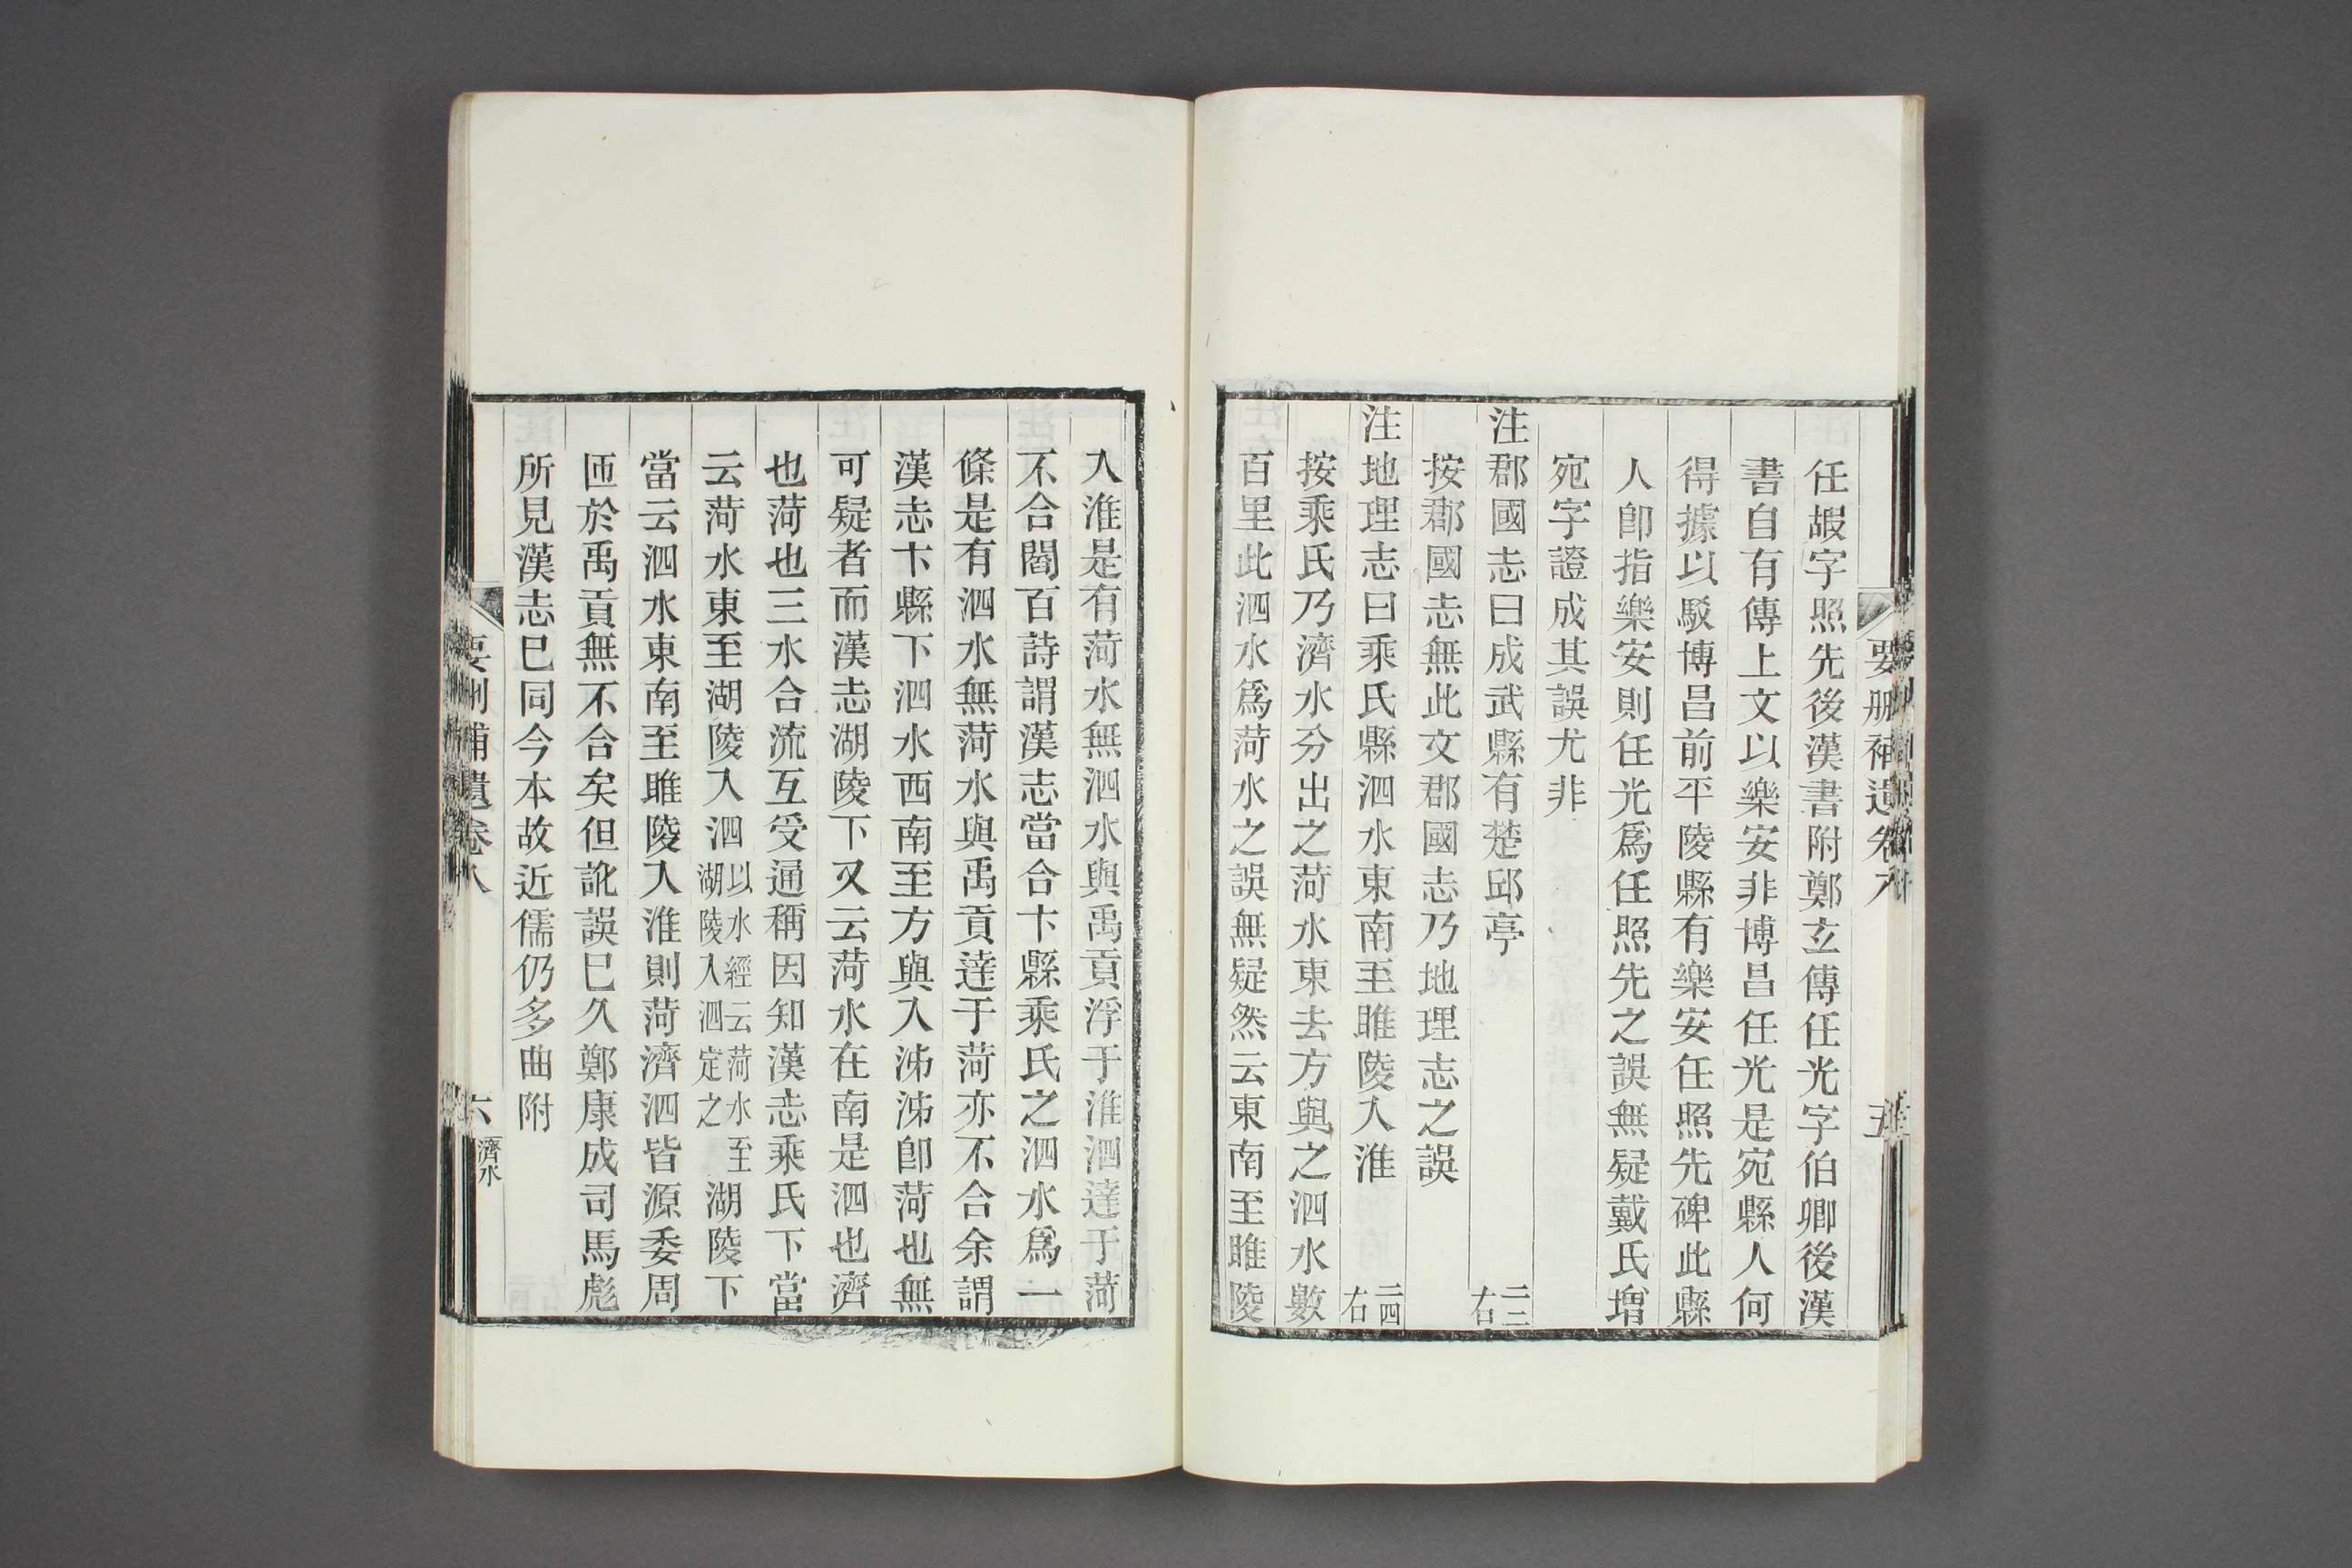 要刪補遺卷八
五
任嘏字照先後漢書附鄭玄傳任光字伯卿後漢
書自有傳上文以樂安非博昌任光是宛縣人何
得據以駁博昌前平陵縣有樂安任照先碑此縣
人卽指樂安則任光爲任照先之誤無疑戴氏增
宛字證成其誤尤非
注郡國志曰成武縣有楚邱亭 二二右
按郡國志無此文郡國志乃地理志之誤
注地理志曰乘氏縣泗水東南至睢陵入淮 二四右
按乘氏乃濟水分出之菏水東去方與之泗水數
百里此泗水爲菏水之誤無疑然云東南至睢陵
入淮是有菏水無泗水與禹貢浮于淮泗達于菏
不合閻百詩謂漢志當合卞縣乘氏之泗水爲一
條是有泗水無菏水與禹貢達于菏亦不合余謂
漢志卞縣下泗水西南至方與入泲泲卽菏也無
可疑者而漢志湖陵下又云菏水在南是泗也濟
也菏也三水合流互受通稱因知漢志乘氏下當
云菏水東至湖陵入泗以水經云菏水至湖陵入泗定之湖陵下
當云泗水東南至睢陵入淮則菏濟泗皆源委周
匝於禹貢無不合矣但訛誤已久鄭康成司馬彪
所見漢志已同今本故近儒仍多曲附
要刪補遺卷八
六
濟水